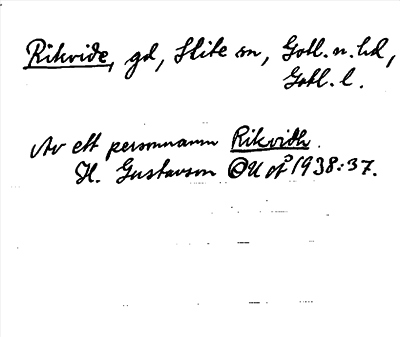 Rikvide, gd, Slite sn, Gotl. n. hd,
Gotl. l.
Av ett personnamn Rikvidh.
H. Gustavson OUÅ 1938:37.